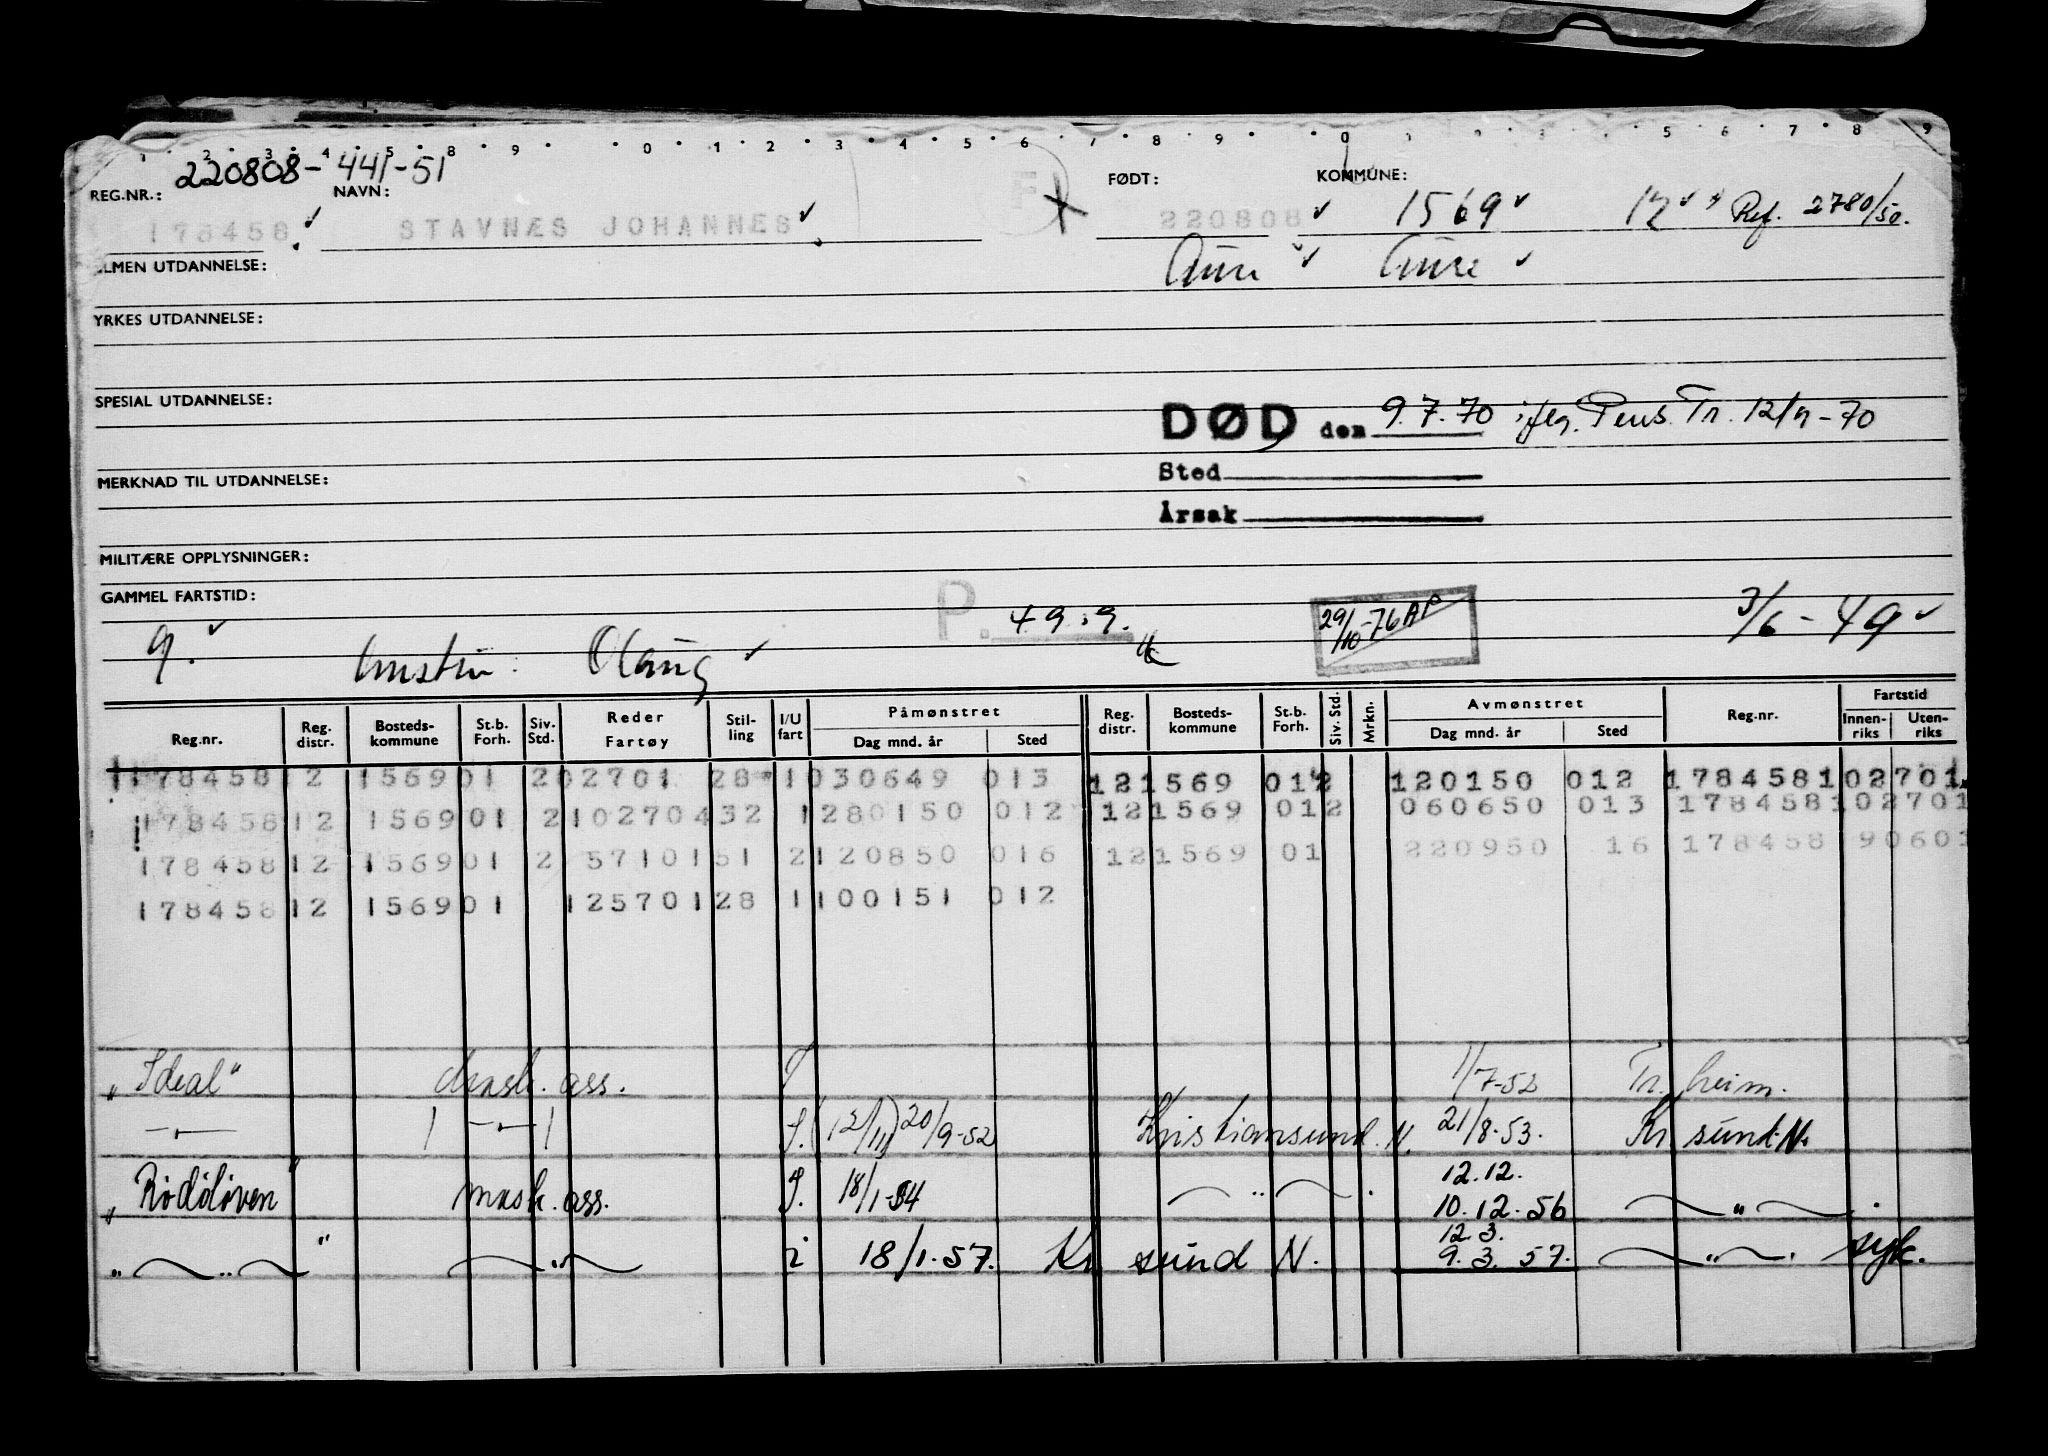 1 2 3 4 5 8 9 0 1 2 3 4 5 6 7 8 9 0 5 6 7 8 9
220808-441-51
REG.NR.: NAVN: FØDT: KOMMUNE:
178458 STAVNÆS JOHANNES 220808 1569 12 Ref. 2780/50.
ALMEN UTDANNELSE: Aure Aure
YRKES UTDANNELSE:
SPESIAL UTDANNELSE:
DØD den 9.7.70 ifлg. Pens. Tr. 12/9-70
Sted
MERKNAD TIL UTDANNELSE:
Årsak
MILITÆRE OPPLYSNINGER:
GAMMEL FARTSTID:
P. 49.9. 29/10-76 AP 3/6-49
g. Olaug
Reg.nr. Reg. distr. Bosteds-kommune St.b. Forh. Siv. Std. Reder Fartøy Stil-ling I/U fart Påmønstret Dag mnd. år Sted Reg. distr. Bosteds-kommune St.b. Forh. Siv. Std. Mrkn. Avmønstret Dag mnd. år Sted Reg.nr. Fartstid Innen-riks Uten-riks
178458 12 1569 01 2 02701 28 1 030649 013 12 1569 01 2 120150 012 178458 1 02701
178458 12 1569 01 2 10270432 1 280150 012 12 1569 01 2 060650 013 178458 1 02701
178458 12 1569 01 2 5710151 2 120850 016 12 1569 01 220950 16 178458 90601
178458 12 1569 01 12570128 1 100151 012
"Ideal" mask. ass. 1/7-52 Tr.heim.
(12/11) 20/9-52 Kristiansund. N. 21/8-53. Kr. sund. N.
"Rödölöven" mask. ass. 18/1-54 " 12.12. 10.12.56 "
" " " i 18/1-57. Kr sund N. 12.3. 9.3.57. " syk.